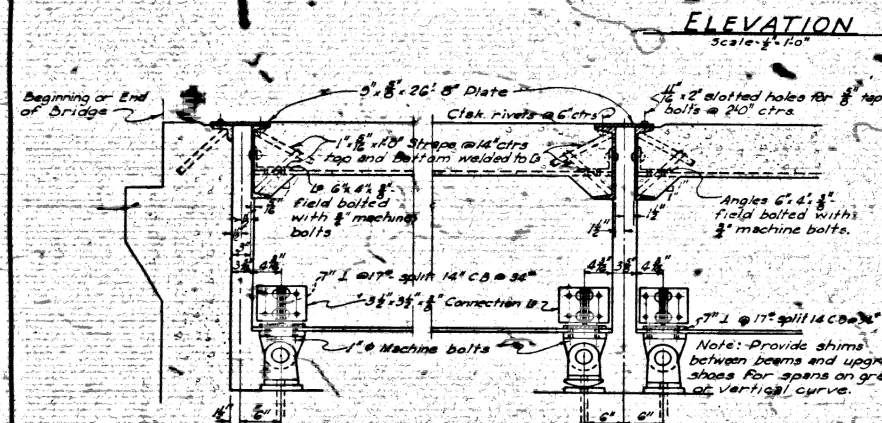 ELEVATION
Scale-½"=1'-0"
Beginning or End
of Bridge
9" x ⅝" x 26'-8" Plate
Ctsk. rivets @ 6" ctrs
11/16" x 2" slotted holes for ⅝" tap
bolts @ 2'-0" ctrs.
Straps @ 14" ctrs
top and Bottom welded to
6" x 4" x ⅜"
field bolted
with ¾" machine
bolts
Angles 6" x 4" x ⅜"
field bolted with
¾" machine bolts.
1½"
1½"
7" ⊥ @ 17# split 14" CB @ 34#
3½" x 3½" x ⅜" Connection
7" ⊥ @ 17# split 14 CB @ 34#
1" Φ Machine bolts
Note: Provide shims
between beams and upgr
shoes for spans on gr
or vertical curve.
1½"
6"
6"